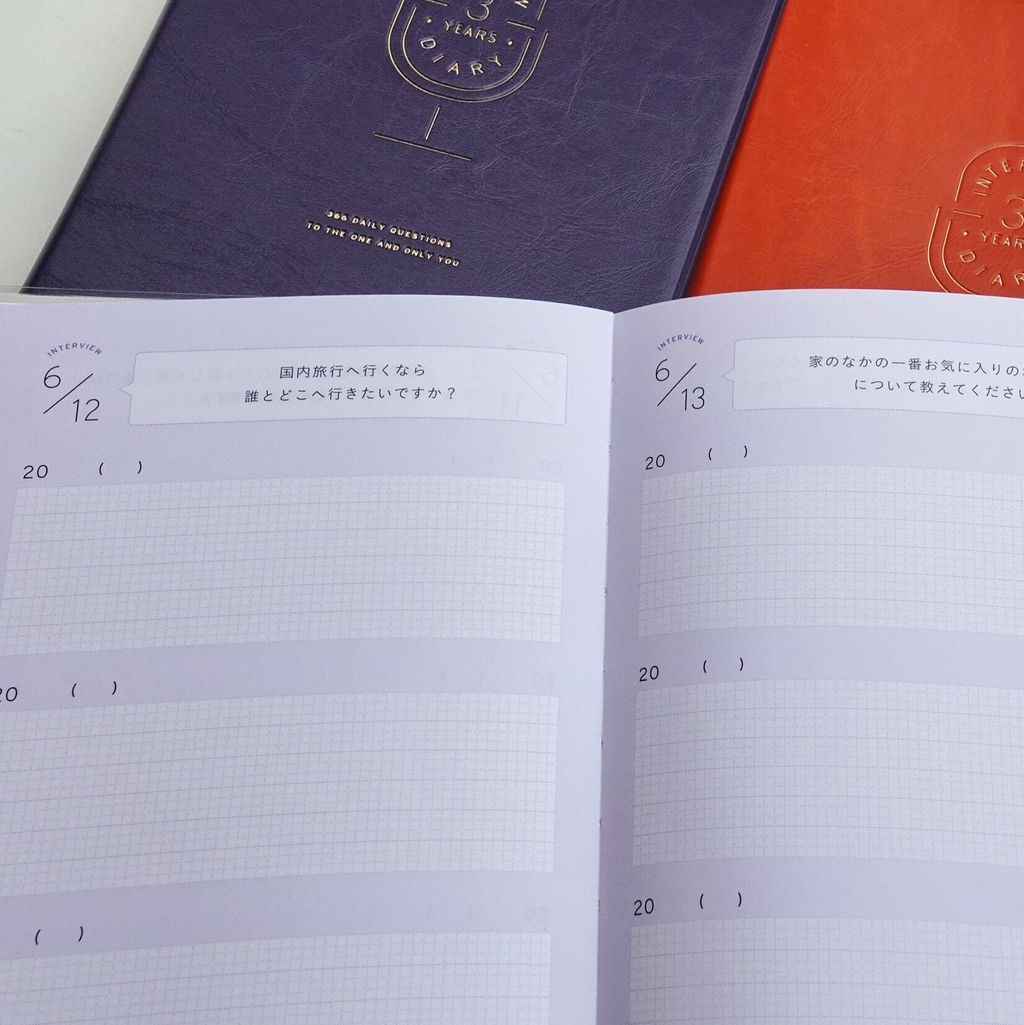 3
YEARS
DIARY
366 DAILY QUESTIONS
TO THE ONE AND ONLY YOU
3
YEAR
INTERVIEW
6/12
国内旅行へ行くなら
誰とどこへ行きたいですか？
20 ( )
20 ( )
( )
INTERVIEW
6/13
家のなかの一番お気に入りの
について教えてください
20 ( )
20 ( )
20 ( )